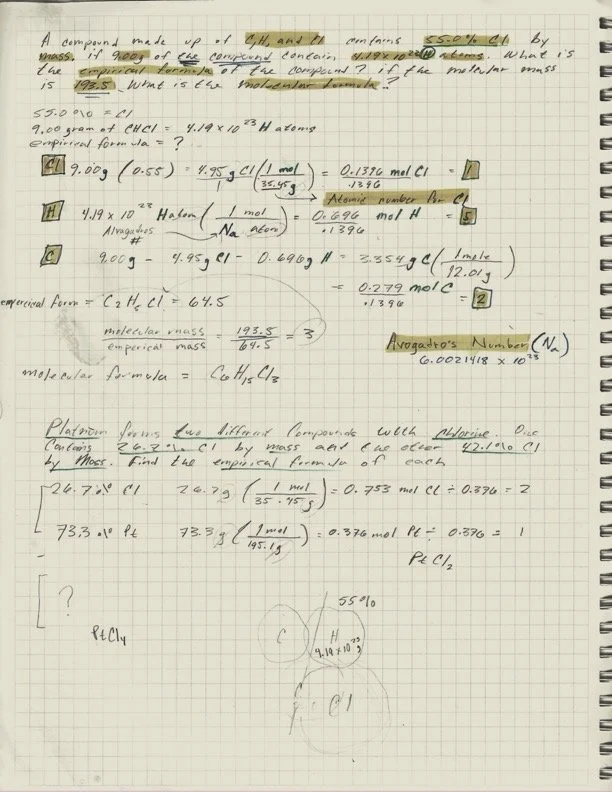 A compound made up of C, H, and Cl contains 55.0% Cl by
mass. if 9.00g of the compound contain 4.19 x 10^23 H atoms. What is
the empirical formula of the compound? if the molecular mass
is 193.5. What is the molecular formula.?
55.0% = Cl
9.00 gram of CHCl = 4.19 x 10^23 H atoms
empirical formula = ?
Cl 9.00g (0.55) = 4.95g Cl/1 (1 mol/35.45g) = 0.1396 mol Cl/.1396 = 1
Atomic number for Cl
H 4.19 x 10^23 H atom (1 mol/Na atom) = 0.696 mol H/.1396 = 5
Alvagadros
#
C 9.00g - 4.95g Cl - 0.696g H = 3.354g C (1 mole/12.01g)
= 0.279 mol C/.1396 = 2
empericcal form = C2H5Cl = 64.5
molecular mass/emperical mass = 193.5/64.5 = 3
Avogadro's Number (Na)
6.0021418 x 10^23
molecular formula = C6H15Cl3
Platnium forms two different Compounds with chlorine. One
Contains 26.7% Cl by mass and the other 42.1% Cl
by Mass. Find the empirical formula of each
26.7% Cl 26.7g (1 mol/35.45g) = 0.753 mol Cl ÷ 0.376 = 2
73.3% Pt 73.3g (1 mol/195.1g) = 0.376 mol Pt ÷ 0.376 = 1
PtCl2
?
PtCl4
55%
C
H
4.19 x 10^23
g
C
Cl